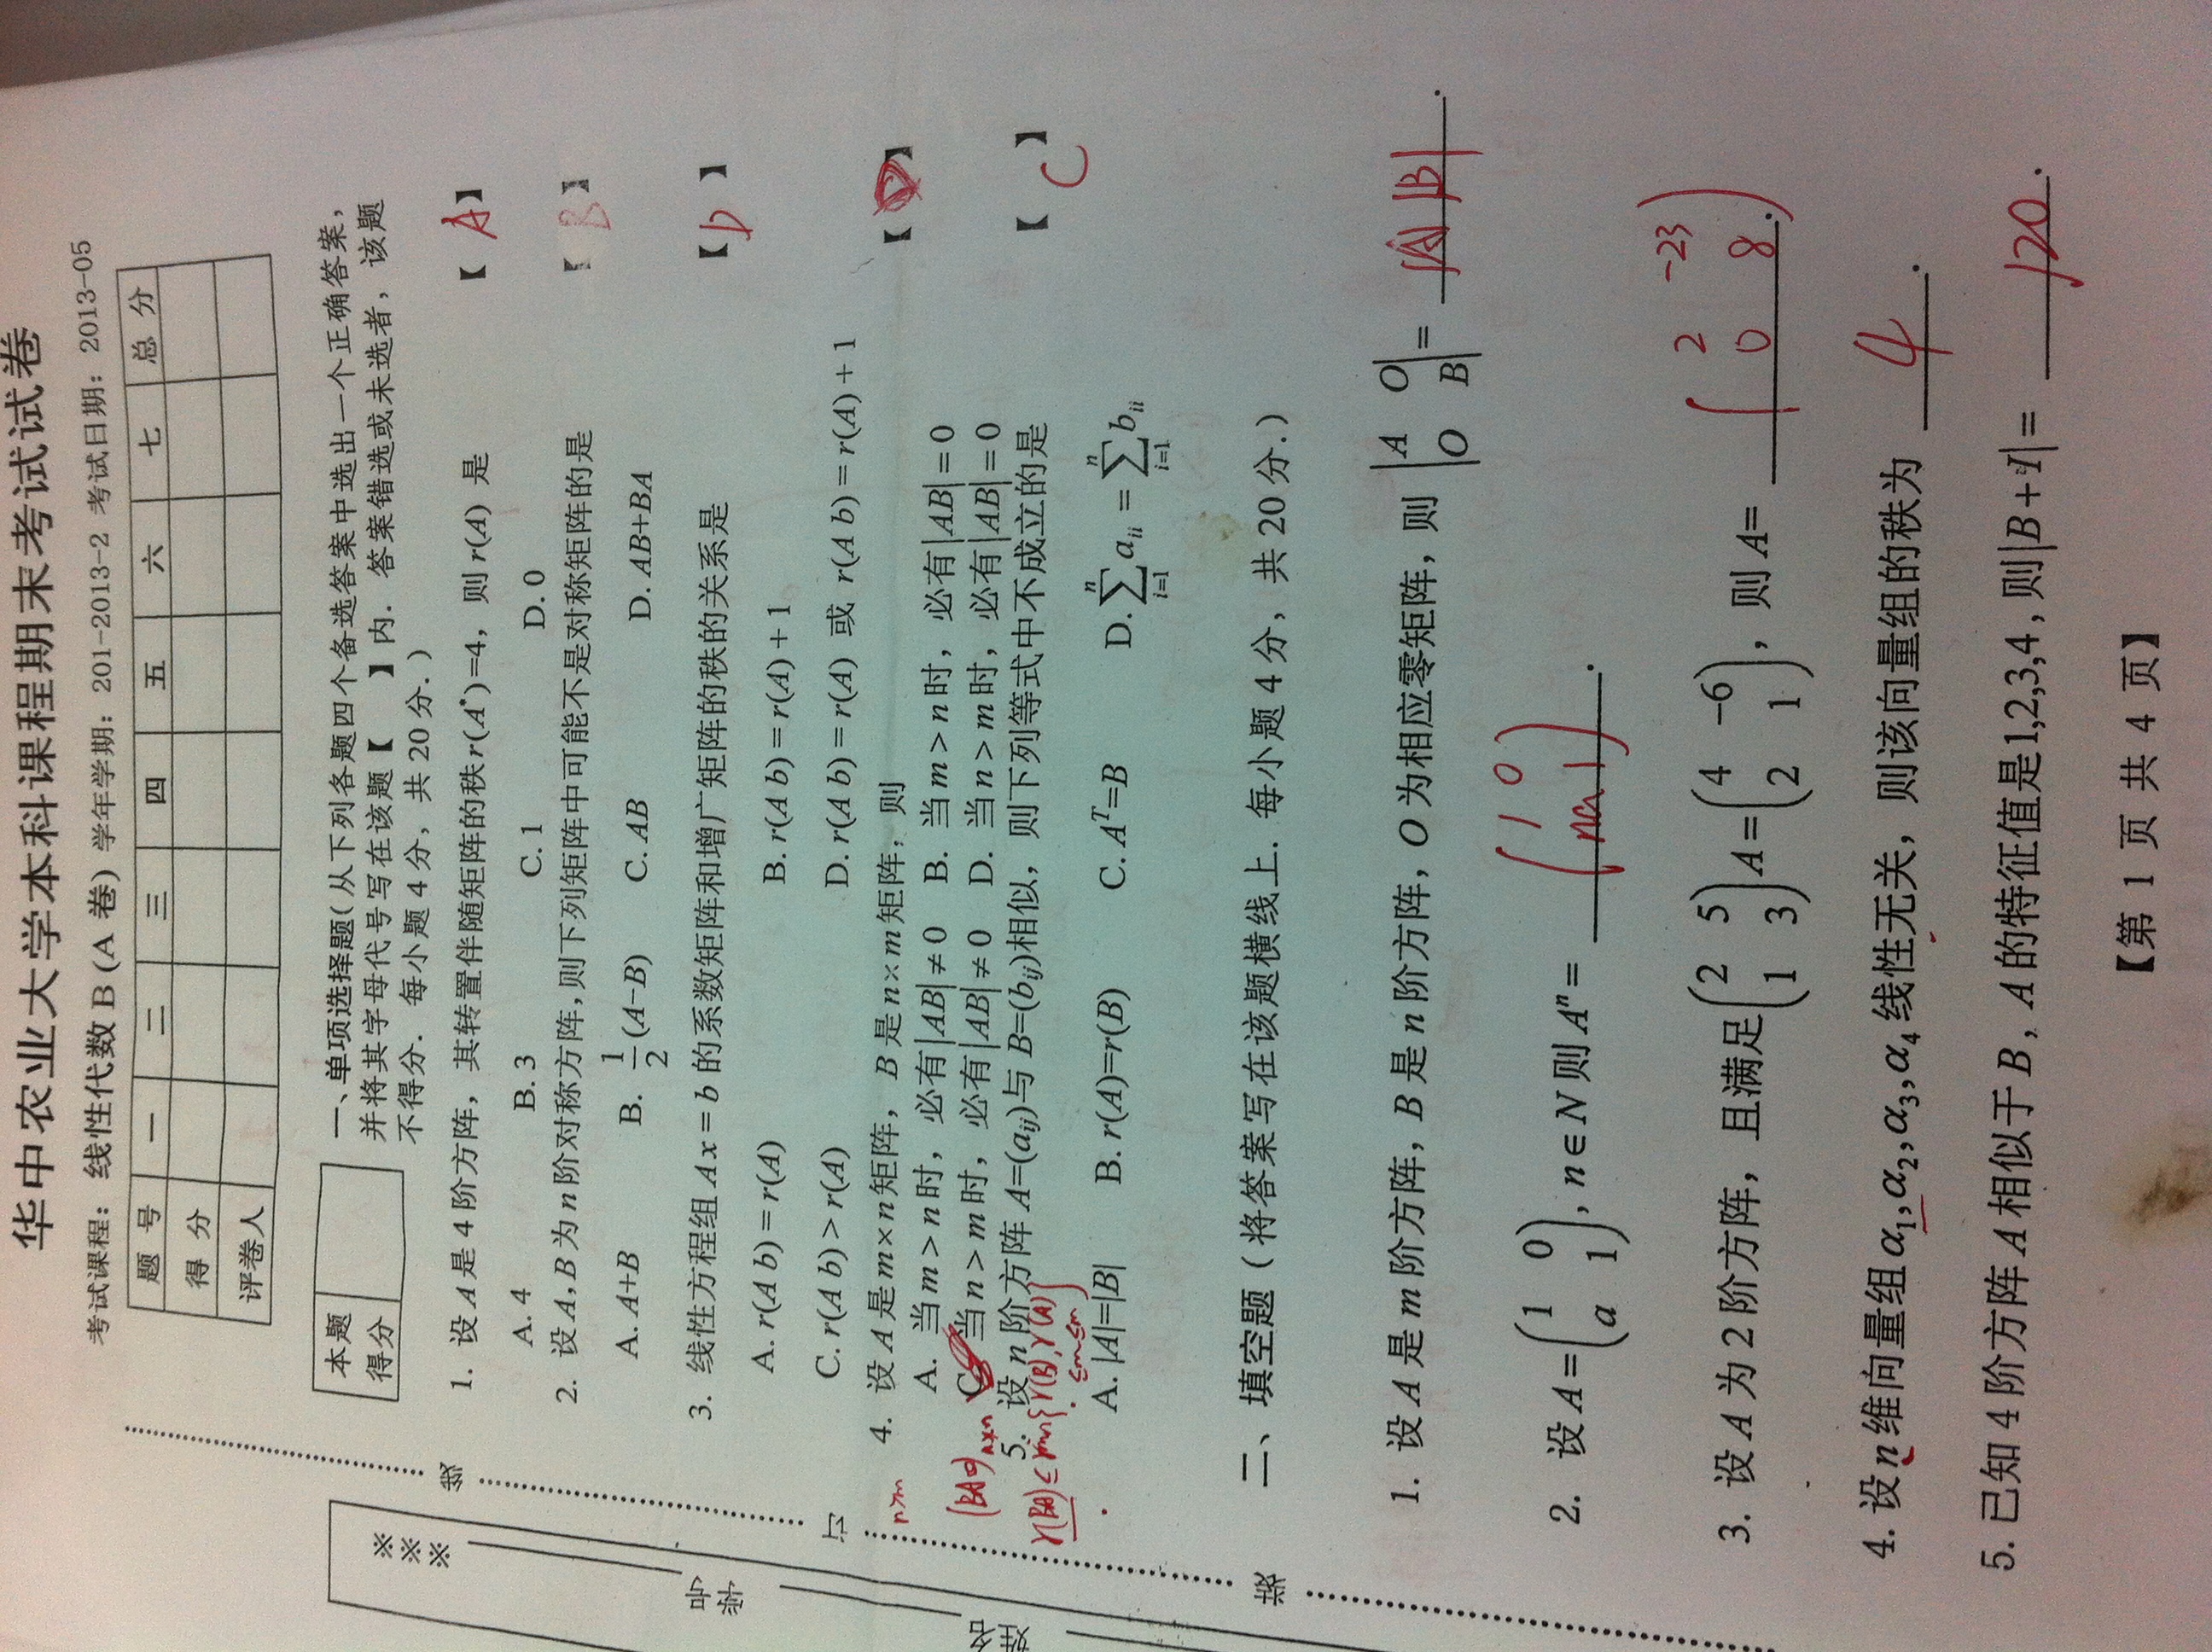 华中农业大学本科课程期末考试试卷
考试课程：线性代数 B (A 卷) 学年学期：201-2013-2 考试日期：2013-05
题 号 一 二 三 四 五 六 七 总 分
得 分
评卷人
本题
得分
一、单项选择题(从下列各题四个备选答案中选出一个正确答案，
并将其字母代号写在该题【 】内. 答案错选或未选者，该题
不得分. 每小题 4 分，共 20 分.)
1. 设 A 是 4 阶方阵，其转置伴随矩阵的秩 r(A*)=4，则 r(A) 是 【 A 】
A. 4 B. 3 C. 1 D. 0
2. 设 A, B 为 n 阶对称方阵,则下列矩阵中可能不是对称矩阵的是 【 B 】
A. A+B B. 1/2 (A-B) C. AB D. AB+BA
3. 线性方程组 Ax = b 的系数矩阵和增广矩阵的秩的关系是 【 D 】
A. r(A b) = r(A) B. r(A b) = r(A) + 1
C. r(A b) > r(A) D. r(A b) = r(A) 或 r(A b) = r(A) + 1
n>m
4. 设 A 是 m×n 矩阵，B 是 n×m 矩阵，则 【 】
A. 当 m > n 时，必有 |AB| ≠ 0 B. 当 m > n 时，必有 |AB| = 0
C. 当 n > m 时，必有 |AB| ≠ 0 D. 当 n > m 时，必有 |AB| = 0
5. 设 n 阶方阵 A=(aij)与 B=(bij)相似，则下列等式中不成立的是 【 C 】
r(BA) ≤ min{r(B), r(A)}
≤m ≤m
A. |A|=|B| B. r(A)=r(B) C. A^T=B D. ∑_{i=1}^{n} a_{ii} = ∑_{i=1}^{n} b_{ii}
二、填空题（将答案写在该题横线上. 每小题 4 分，共 20 分.）
1. 设 A 是 m 阶方阵, B 是 n 阶方阵, O 为相应零矩阵，则 |A O; O B| = |A| |B| .
2. 设 A = (1 0; a 1), n∈N 则 A^n = (1 0; na 1) .
3. 设 A 为 2 阶方阵，且满足 (2 5; 1 3) A = (4 -6; 2 1)，则 A= (2 -23; 0 8) .
4. 设 n 维向量组 α1, α2, α3, α4 线性无关，则该向量组的秩为 4 .
5. 已知 4 阶方阵 A 相似于 B, A 的特征值是1,2,3,4 , 则 |B + I| = 120 .
【第 1 页 共 4 页】
※※※
学号
姓名
线
订
装